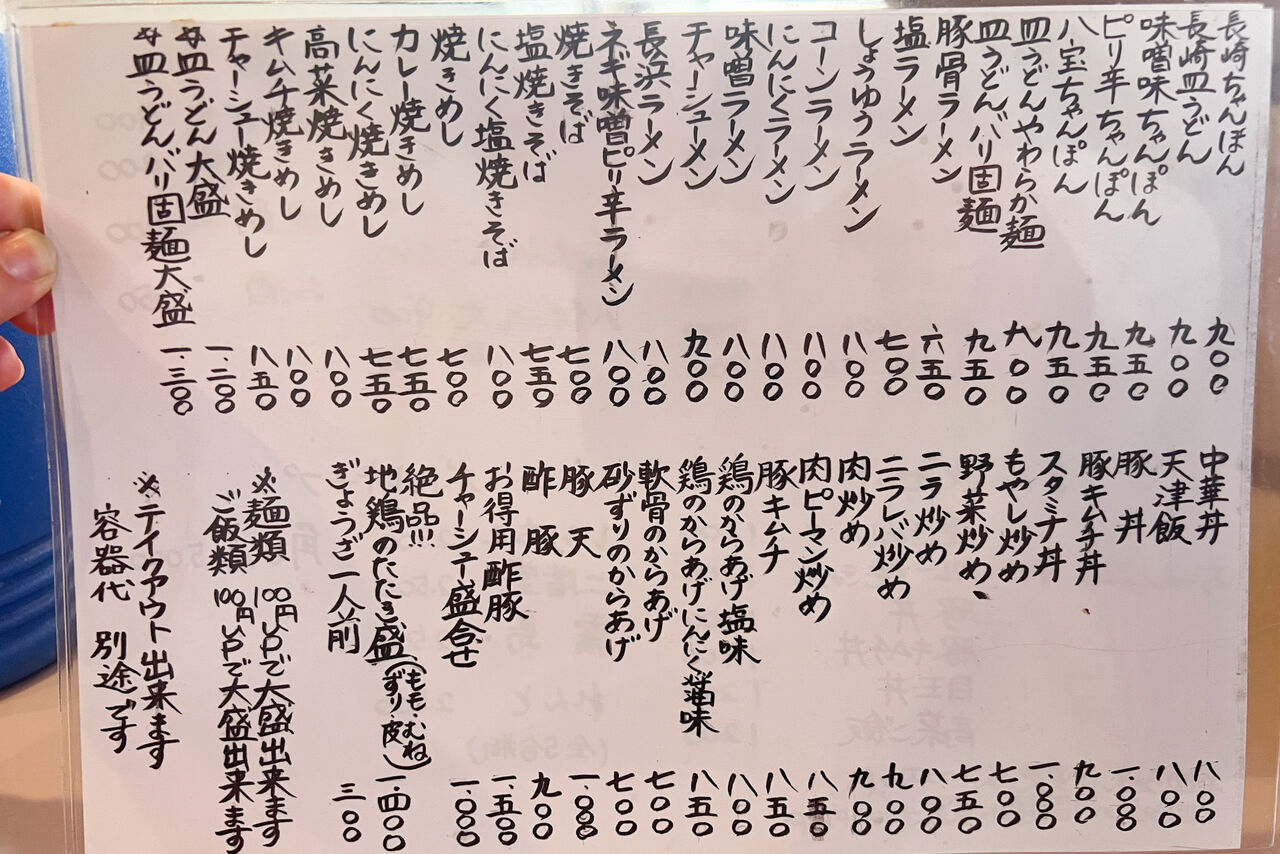 長崎ちゃんぽん 九〇〇
長崎皿うどん 九〇〇
味噌味ちゃんぽん 九五〇
ピリ辛ちゃんぽん 九五〇
八宝ちゃんぽん 九五〇
皿うどんやわらか麺 九〇〇
皿うどんバリ固麺 九五〇
豚骨ラーメン 六五〇
塩ラーメン 七〇〇
しょうゆラーメン 八〇〇
コーンラーメン 八〇〇
にんにくラーメン 八〇〇
味噌ラーメン 八〇〇
チャーシューメン 九〇〇
長浜ラーメン 八〇〇
ネギ味噌ピリ辛ラーメン 八〇〇
焼きそば 七〇〇
塩焼きそば 七五〇
にんにく塩焼きそば 八〇〇
焼きめし 七〇〇
カレー焼きめし 七五〇
にんにく焼きめし 七五〇
高菜焼きめし 八〇〇
キムチ焼きめし 八〇〇
チャーシュー焼きめし 八五〇
皿うどん大盛 一.二〇〇
皿うどんバリ固麺大盛 一.三〇〇
中華丼 八〇〇
天津飯 八〇〇
豚丼 一.〇〇〇
豚キムチ丼 九〇〇
スタミナ丼 一.〇〇〇
もやし炒め 七〇〇
野菜炒め 七五〇
ニラ炒め 八〇〇
ニラレバ炒め 九〇〇
肉炒め 九〇〇
肉ピーマン炒め 八五〇
豚キムチ 八五〇
鶏のからあげ塩味 八〇〇
鶏のからあげにんにく醤味 八五〇
軟骨のからあげ 七〇〇
砂ずりのからあげ 七〇〇
豚天 一.〇〇〇
酢豚 九〇〇
お得用酢豚 一.五〇〇
チャーシュー盛合せ 一.〇〇〇
絶品!!!
地鶏のたたき盛(もも・むね ずり・皮) 一.四〇〇
ぎょうざ一人前 三〇〇
※麺類 100円UPで大盛出来ます
ご飯類 100円UPで大盛出来ます
※テイクアウト出来ます
容器代 別途です